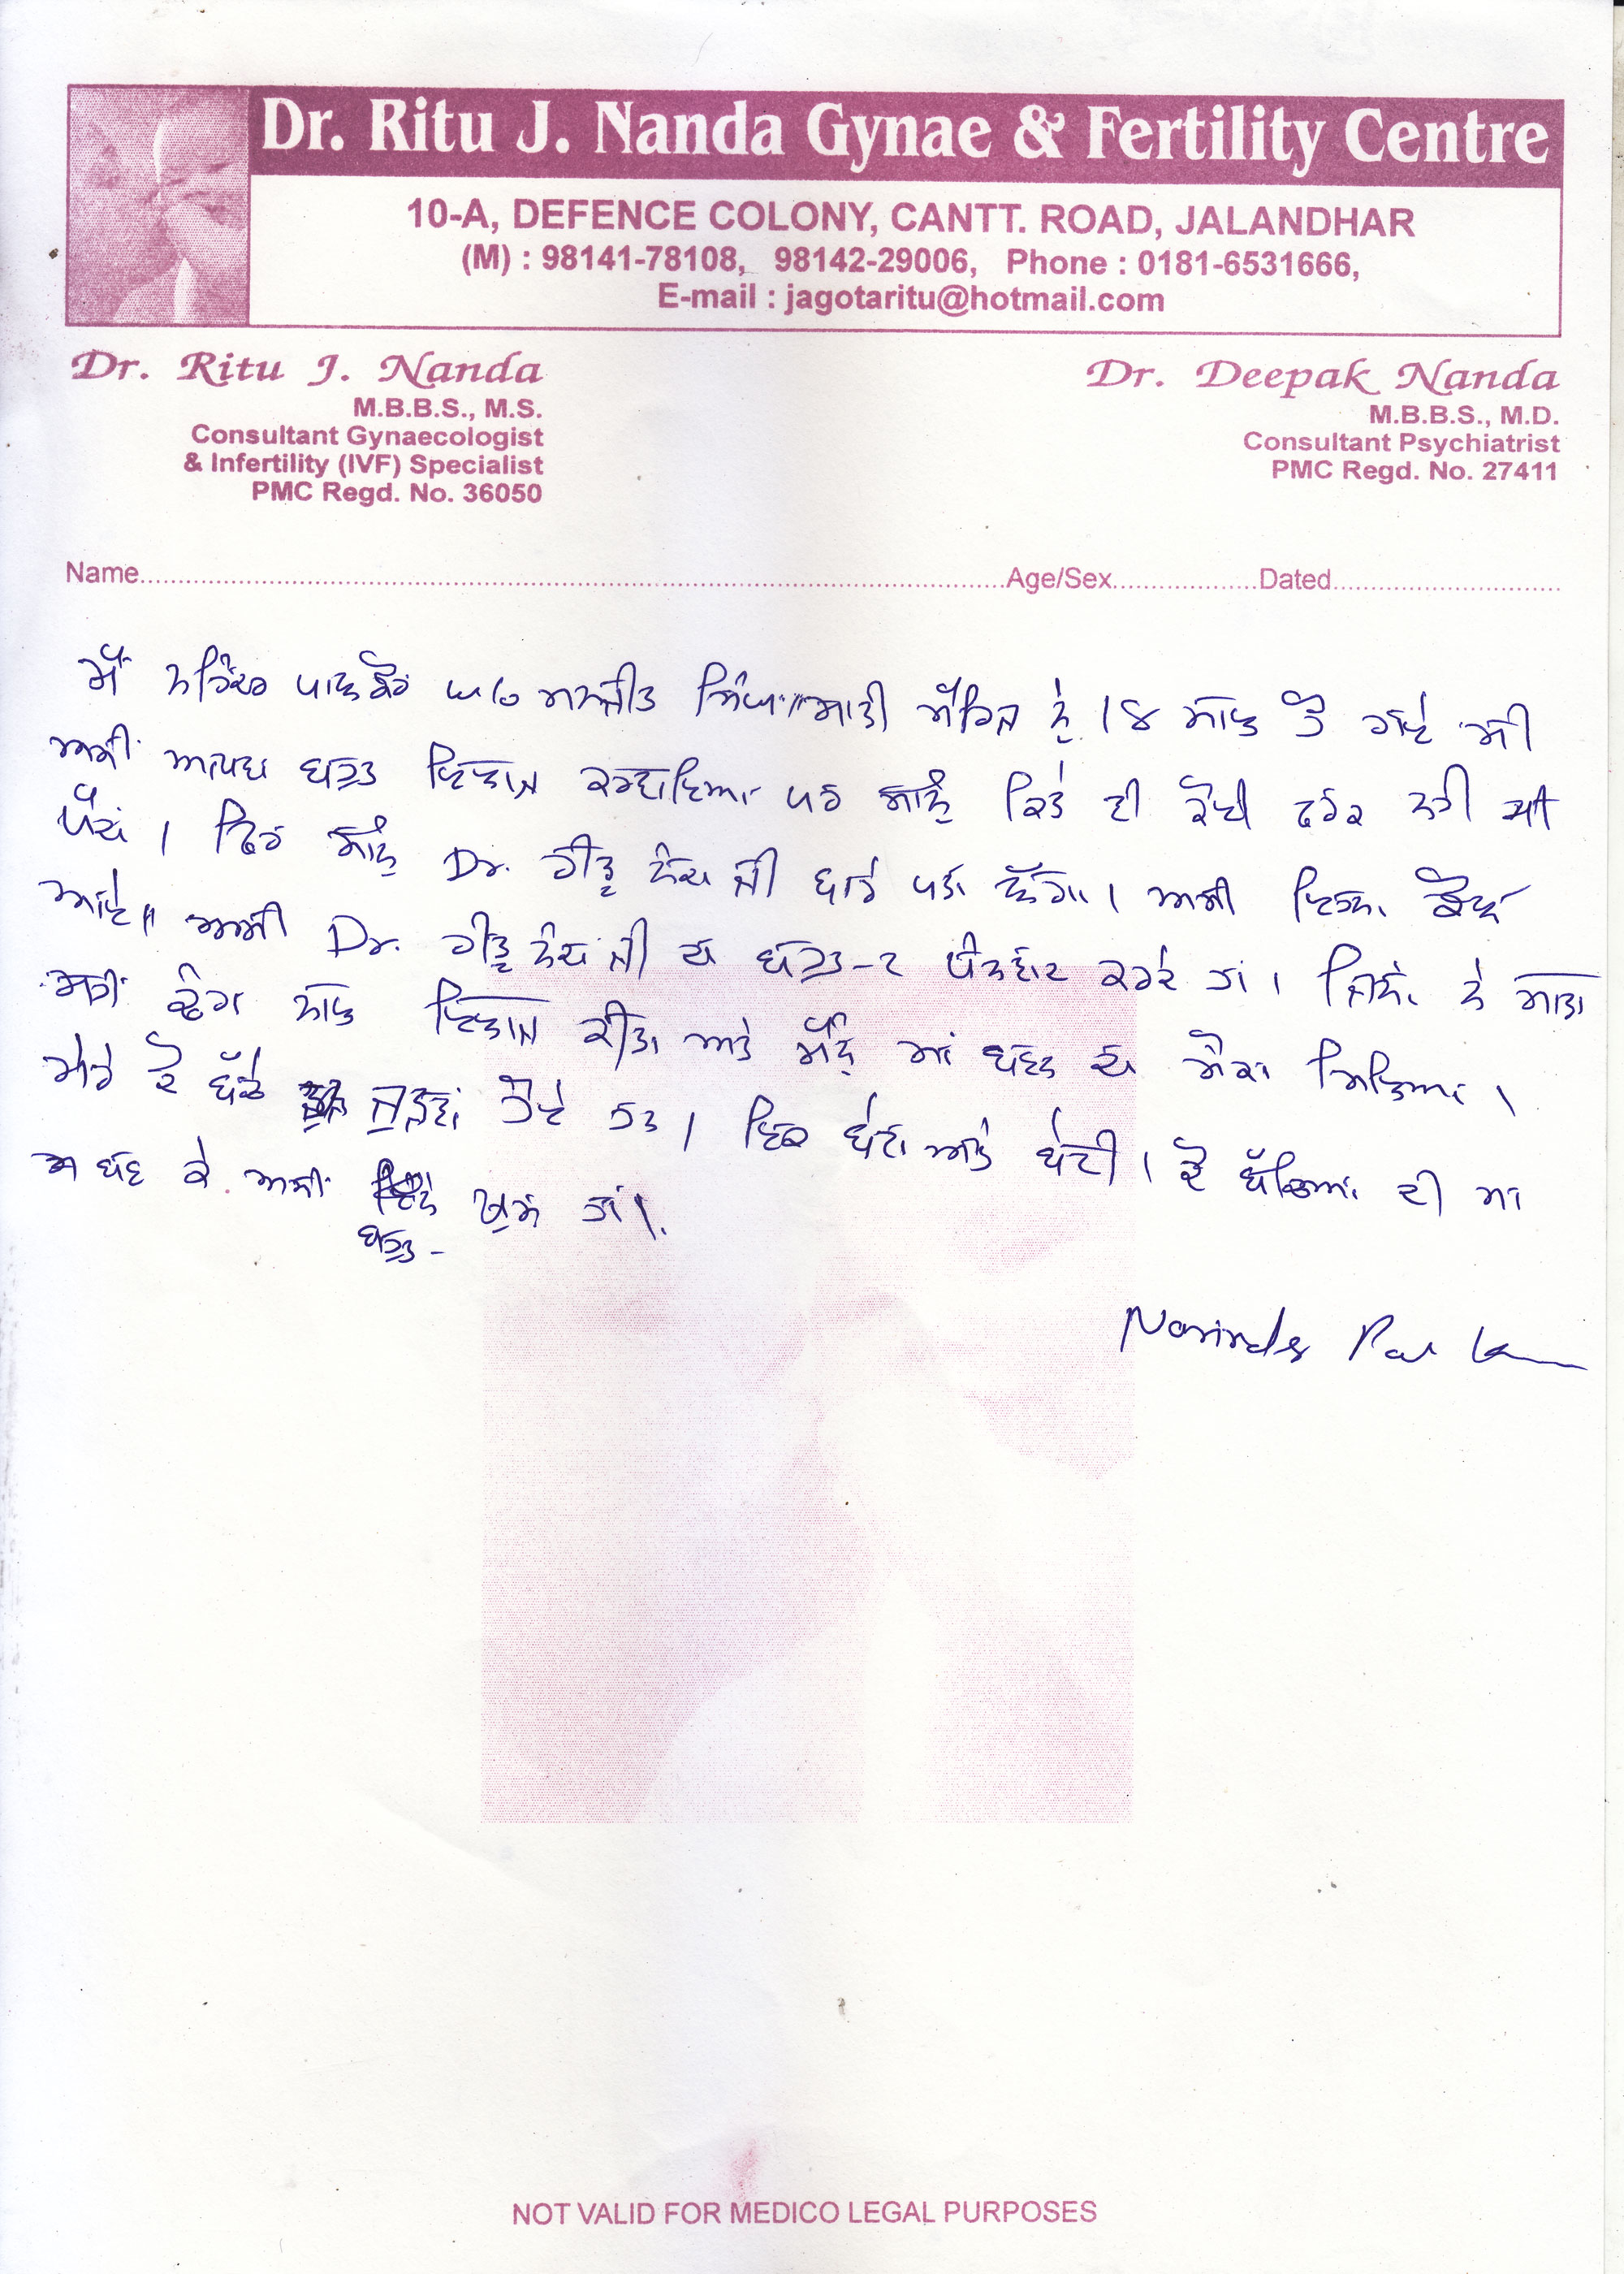 Dr. Ritu J. Nanda Gynae & Fertility Centre
10-A, DEFENCE COLONY, CANTT. ROAD, JALANDHAR
(M) : 98141-78108, 98142-29006, Phone : 0181-6531666,
E-mail : jagotaritu@hotmail.com
Dr. Ritu J. Nanda
M.B.B.S., M.S.
Consultant Gynaecologist
& Infertility (IVF) Specialist
PMC Regd. No. 36050
Dr. Deepak Nanda
M.B.B.S., M.D.
Consultant Psychiatrist
PMC Regd. No. 27411
Name Age/Sex Dated
ਮੈਂ ਨਰਿੰਦਰ ਪਾਲ ਕੌਰ w/o ਮਨਜੀਤ ਸਿੰਘ॥ ਸਾਡੀ ਮੈਰਿਜ ਨੂੰ 18 ਸਾਲ ਹੋ ਗਏ ਸੀ
ਅਸੀਂ ਬਹੁਤ ਇਲਾਜ ਕਰਵਾਇਆ ਪਰ ਸਾਨੂੰ ਕਿਤੇ ਵੀ ਕੋਈ ਫਰਕ ਨਹੀ ਸੀ
ਪੈਂਦਾ । ਫਿਰ ਸਾਨੂੰ Dr. ਰੀਤੂ ਨੰਦਾ ਜੀ ਬਾਰੇ ਪਤਾ ਲੱਗਾ । ਅਸੀ ਇਹਨਾਂ ਕੋਲ
ਆਏ॥ ਅਸੀ Dr. ਰੀਤੂ ਨੰਦਾ ਜੀ ਦਾ ਬਹੁਤ-2 ਧੰਨਵਾਦ ਕਰਦੇ ਹਾਂ । ਜਿਨਾਂ ਨੇ ਸਾਡਾ
ਸਹੀ ਢੰਗ ਨਾਲ ਇਲਾਜ ਕੀਤਾ ਅਤੇ ਮੈਨੂੰ ਮਾਂ ਬਣਨ ਦਾ ਮੌਕਾ ਮਿਲਿਆ ।
ਮੇਰੇ ਦੋ ਬੱਚੇ ਜੁੜਵਾਂ ਹੋਏ ਹਨ । ਇਕ ਬੇਟਾ ਅਤੇ ਬੇਟੀ । ਦੋ ਬੱਚਿਆਂ ਦੀ ਮਾਂ
ਬਣ ਕੇ ਅਸੀਂ ਬਹੁਤ- ਖੁਸ਼ ਹਾਂ ।
Narinder Pal
NOT VALID FOR MEDICO LEGAL PURPOSES